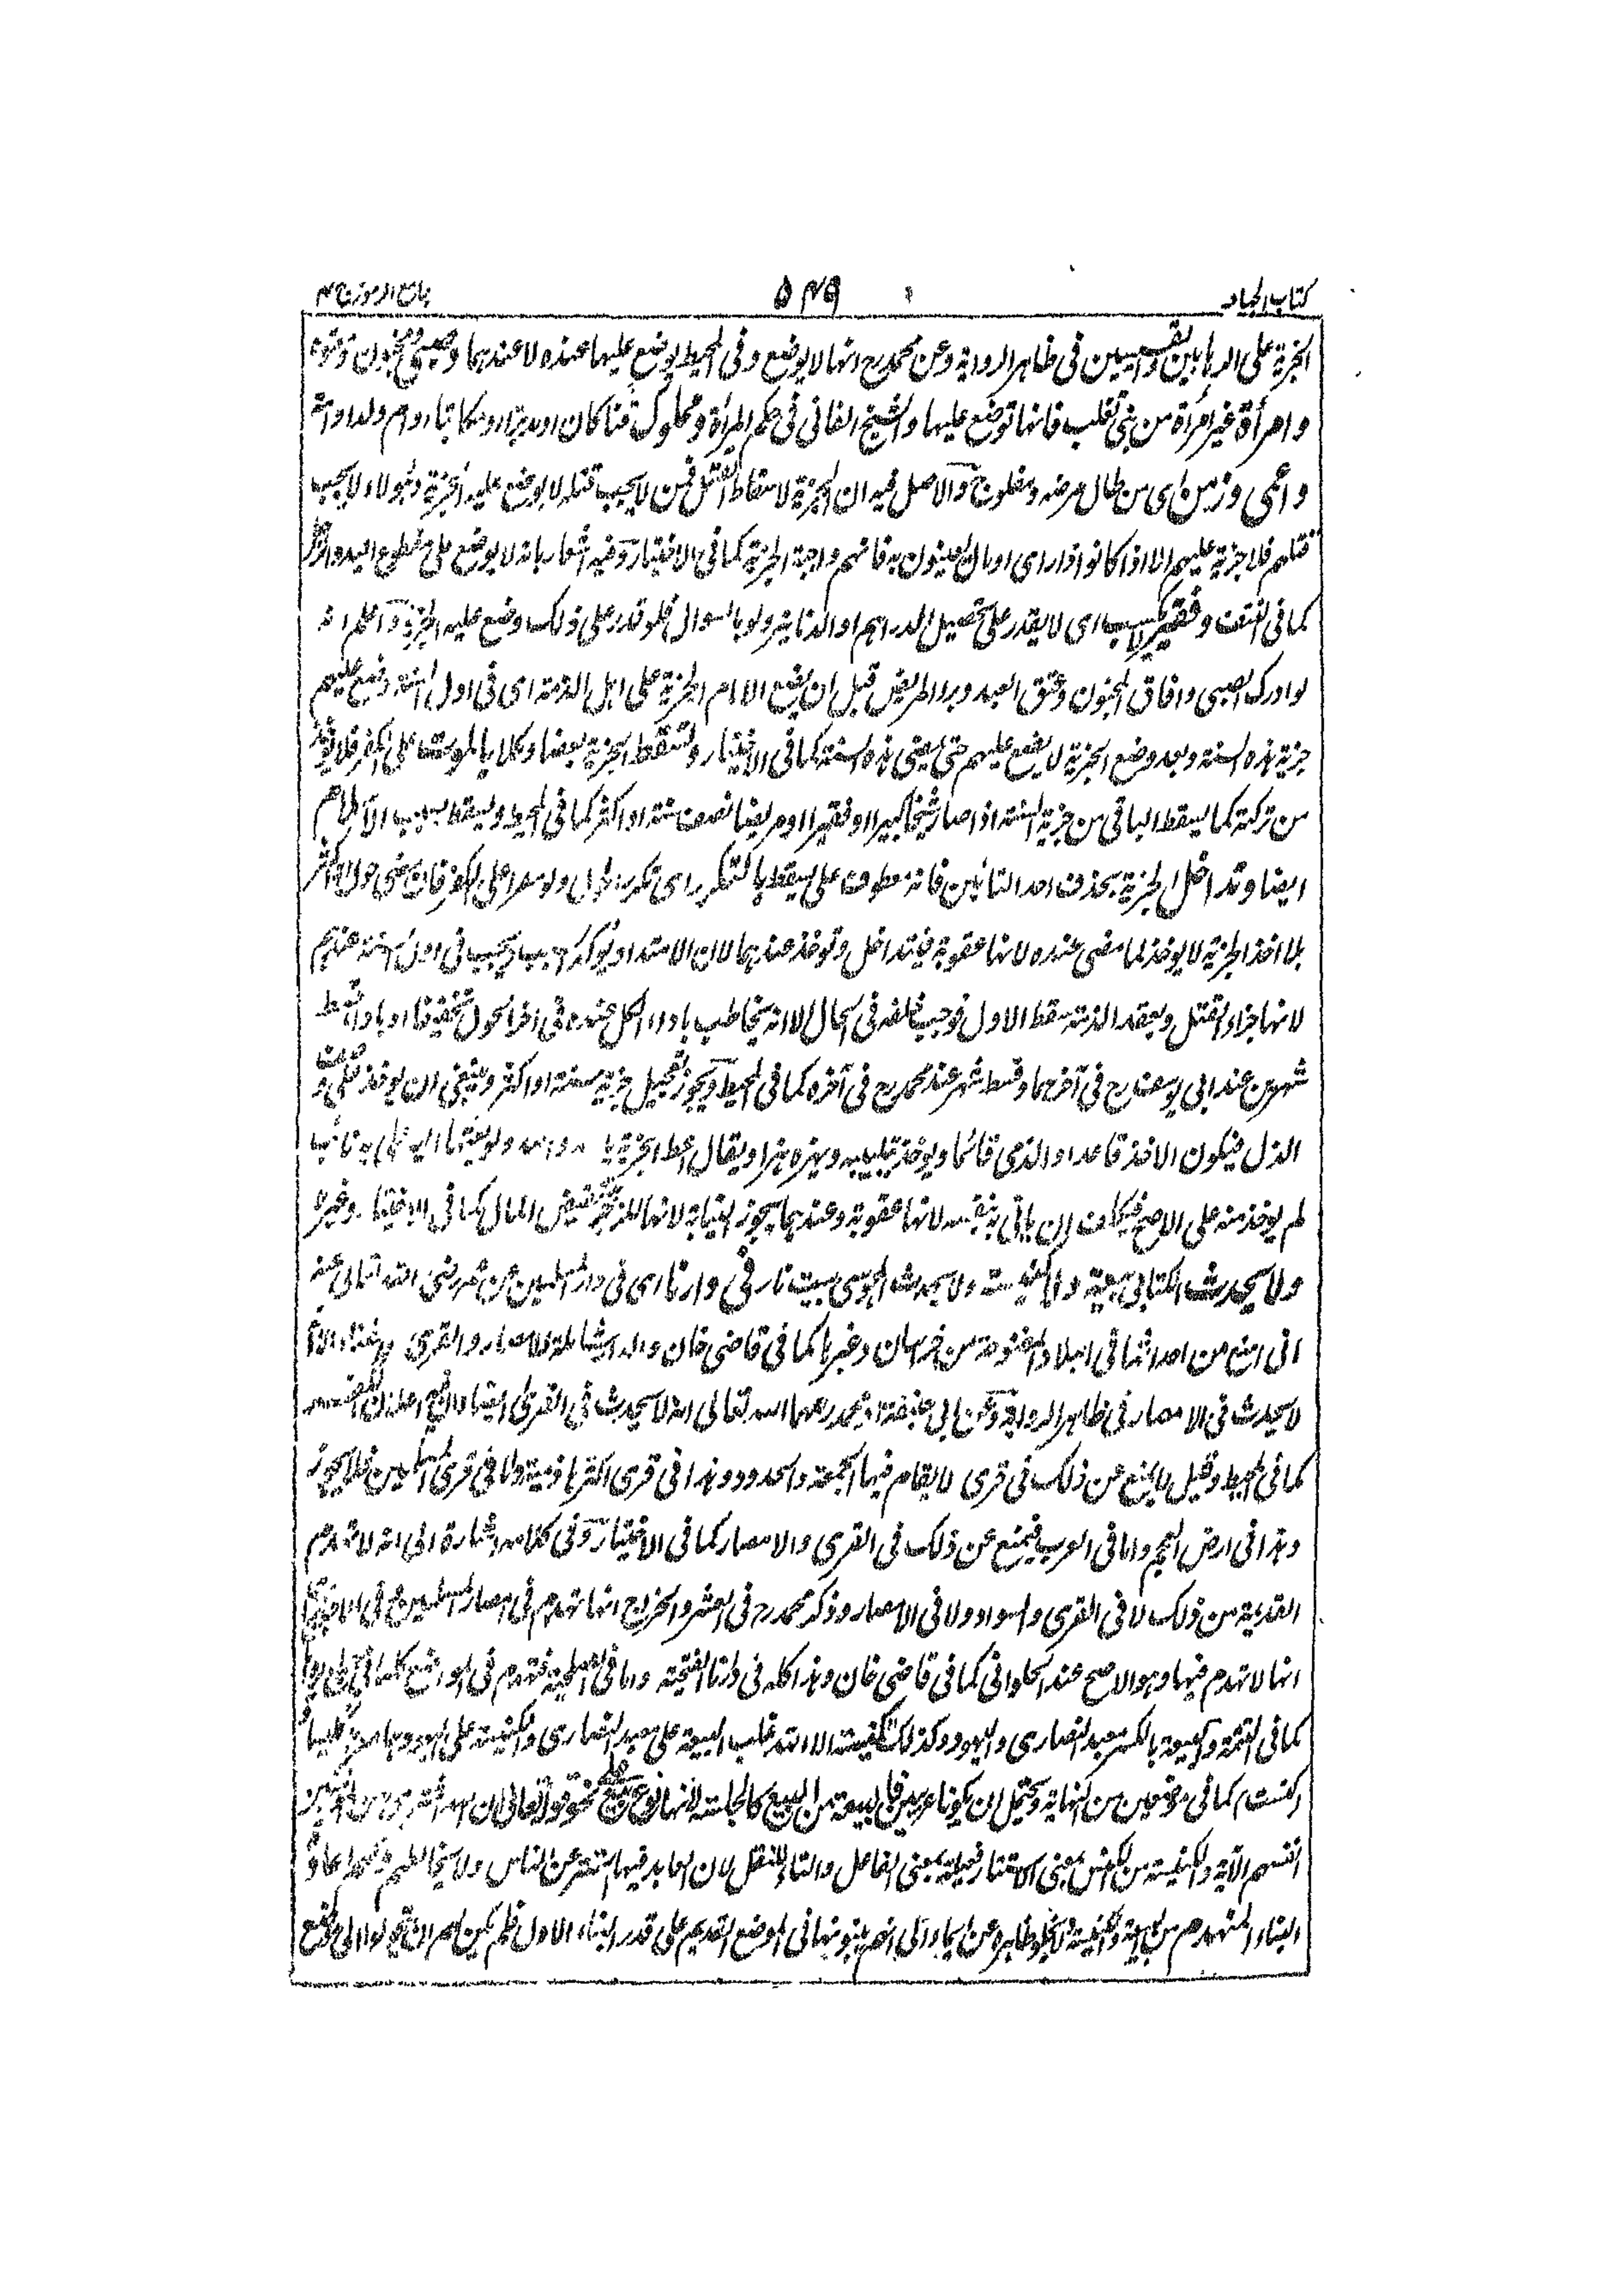 كتاب الجهاد ٥٤٩ جامع الرموز ج ٢
الجزية على الرهابين والقسيسين فى ظاهر الرواية وعن محمد رح انها لا يوضع وفى المحيط يوضع عليها عنده لا عندهما وصبى ومجنون ومعتوه
وامرأة غير امرأة من بنى تغلب فانها توضع عليها والشيخ الفانى فى حكم المرأة ومملوك قنا كان او مدبرا او مكاتبا او ام ولد او ابنها
واعمى وزمن اى من طال مرضه ومفلوج والاصل فيه ان الجزية لاسقاط القتل فمن لا يجب قتله لا يوضع عليه الجزية وهؤلاء لا يجب
قتلهم فلا جزية عليهم الا اذا كانوا ذا رأى او مال يعينون به فانهم واجبة الجزية كما فى الاختيار وفيه اشعار بانه لا يوضع على مقطوع اليد والرجل
كما فى النتف وفقير لا يكسب اى لا يقدر على تحصيل الدراهم او الدنانير ولو بالسوال فلو قدر على ذلك وضع عليه الجزية واعلم انه
لو ادرك الصبى وافاق المجنون وعتق العبد وبرء المريض قبل ان يضع الامام الجزية على اهل الذمة اى فى اول السنة وضع عليهم
جزية هذه السنة وبعد وضع الجزية لا يضع عليهم حتى يمضى هذه السنة كما فى الاختيار وتسقط الجزية بعضا وكلا بالموت على الكفر فلا يوخذ
من تركته كما يسقط الباقى من جزية السنة اذا صار شيخا كبيرا او فقيرا او مريضا نصف سنة او اكثر كما فى المحيط ويسقط بسبب الاسلام
ايضا وتداخل الجزية بحذف احد التائين فانه معطوف على يسقط بالتكرر اى تكرر الحول ولو مصرا على الكفر فان مضى حول او اكثر
بلا اخذ الجزية لا يوخذ لما مضى عنده لانها عقوبة فيتداخل وتوخذ عندهما لان الامتداد يوكد الوجوب ويجب فى اول السنة عندهم
لانها جزاء القتل وبعقد الذمة سقط الاول فوجب خلفه فى الحال الا انه يخاطب باداء الكل عنده فى آخر الحول تخفيفا وباداء قسط
شهرين عند ابى يوسف رح فى آخرهما وقسط شهر عند محمد رح فى آخره كما فى المحيط ويجوز تعجيل جزية سنة او اكثر وينبغى ان يوخذ على وصف
الذل فيكون الآخذ قاعدا والذمى قائما ويوخذ بتلبيبه ويهزه هزا ويقال اعط الجزية يا عدو الله ولو بعثها اليه على يد نائب
لم يوخذ منه على الاصح فيكلف ان ياتى به بنفسه لانها عقوبة وعندهما يجوز النيابة لانها للزجر بتنقيص المال كما فى الاختيار وغيره
ولا يحدث الكتابى بيعة ولا كنيسة ولا يحدث المجوسى بيت نار فى دارنا اى فى دار المسلمين وعن عمر رضى الله تعالى عنه
انى امنع من احداثها فى البلاد المفتوحة من خراسان وغيرها كما فى قاضى خان والدار شاملة للامصار والقرى
لا يحدث فى الامصار فى ظاهر الرواية وعن ابى حنيفة ومحمد رحمهما الله تعالى انه لا يحدث فى القرى ايضا
كما فى المحيط وقيل لا يمنع عن ذلك فى قرى لا يقام فيها الجمعة والحدود وهذا فى قرى اكثرها ذمية واما فى قرى المسلمين فلا يجوز
وهذا فى ارض العجم واما فى العرب فيمنع عن ذلك فى القرى والامصار كما فى الاختيار وفى كلامه اشارة الى انه لا تهدم
القديمة من ذلك لا فى القرى والسواد ولا فى الامصار وذكر محمد رح فى العشر والخراج انها تهدم فى امصار المسلمين
انها لا تهدم فيها وهو الاصح عند الحلوانى كما فى قاضى خان وهذا كله فى دارنا الفتحية واما فى الصلحية فتهدم فى المواضع كلها
كما فى التتمة والبيعة بالكسر معبد النصارى واليهود وكذلك الكنيسة الا انه غلب البيعة على معبد النصارى والكنيسة على اليهود
كنشت كما فى موضعين من النهاية ويحتمل ان يكونا عربيين فالبيعة من البيع كالجلسة لانها نوع بيع نحو قوله تعالى ان الله اشترى من المؤمنين
انفسهم الآية والكنيسة من الكنس بمعنى الاستتار فعيلة بمعنى الفاعل والتاء للنقل لان العابد فيها استتر عن الناس ولا يخالطهم
البناء المنهدم من البيعة والكنيسة فى المحيط فى الموضع القديم على قدر البناء الاول فلم يكن لهم ان يحولوا الى موضع